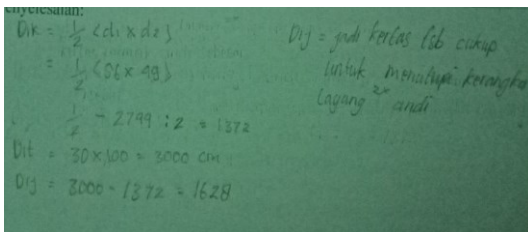 enyelesaian:
Dik = 1/2 (d1 x d2)
= 1/2 (56 x 49)
1/2 - 2744 : 2 = 1372
Dit = 30 x 100 = 3000 cm
Dij = 3000 - 1372 = 1628
Dij = jadi kertas tsb cukup
untuk menutupi kerangka
layang 2x andi